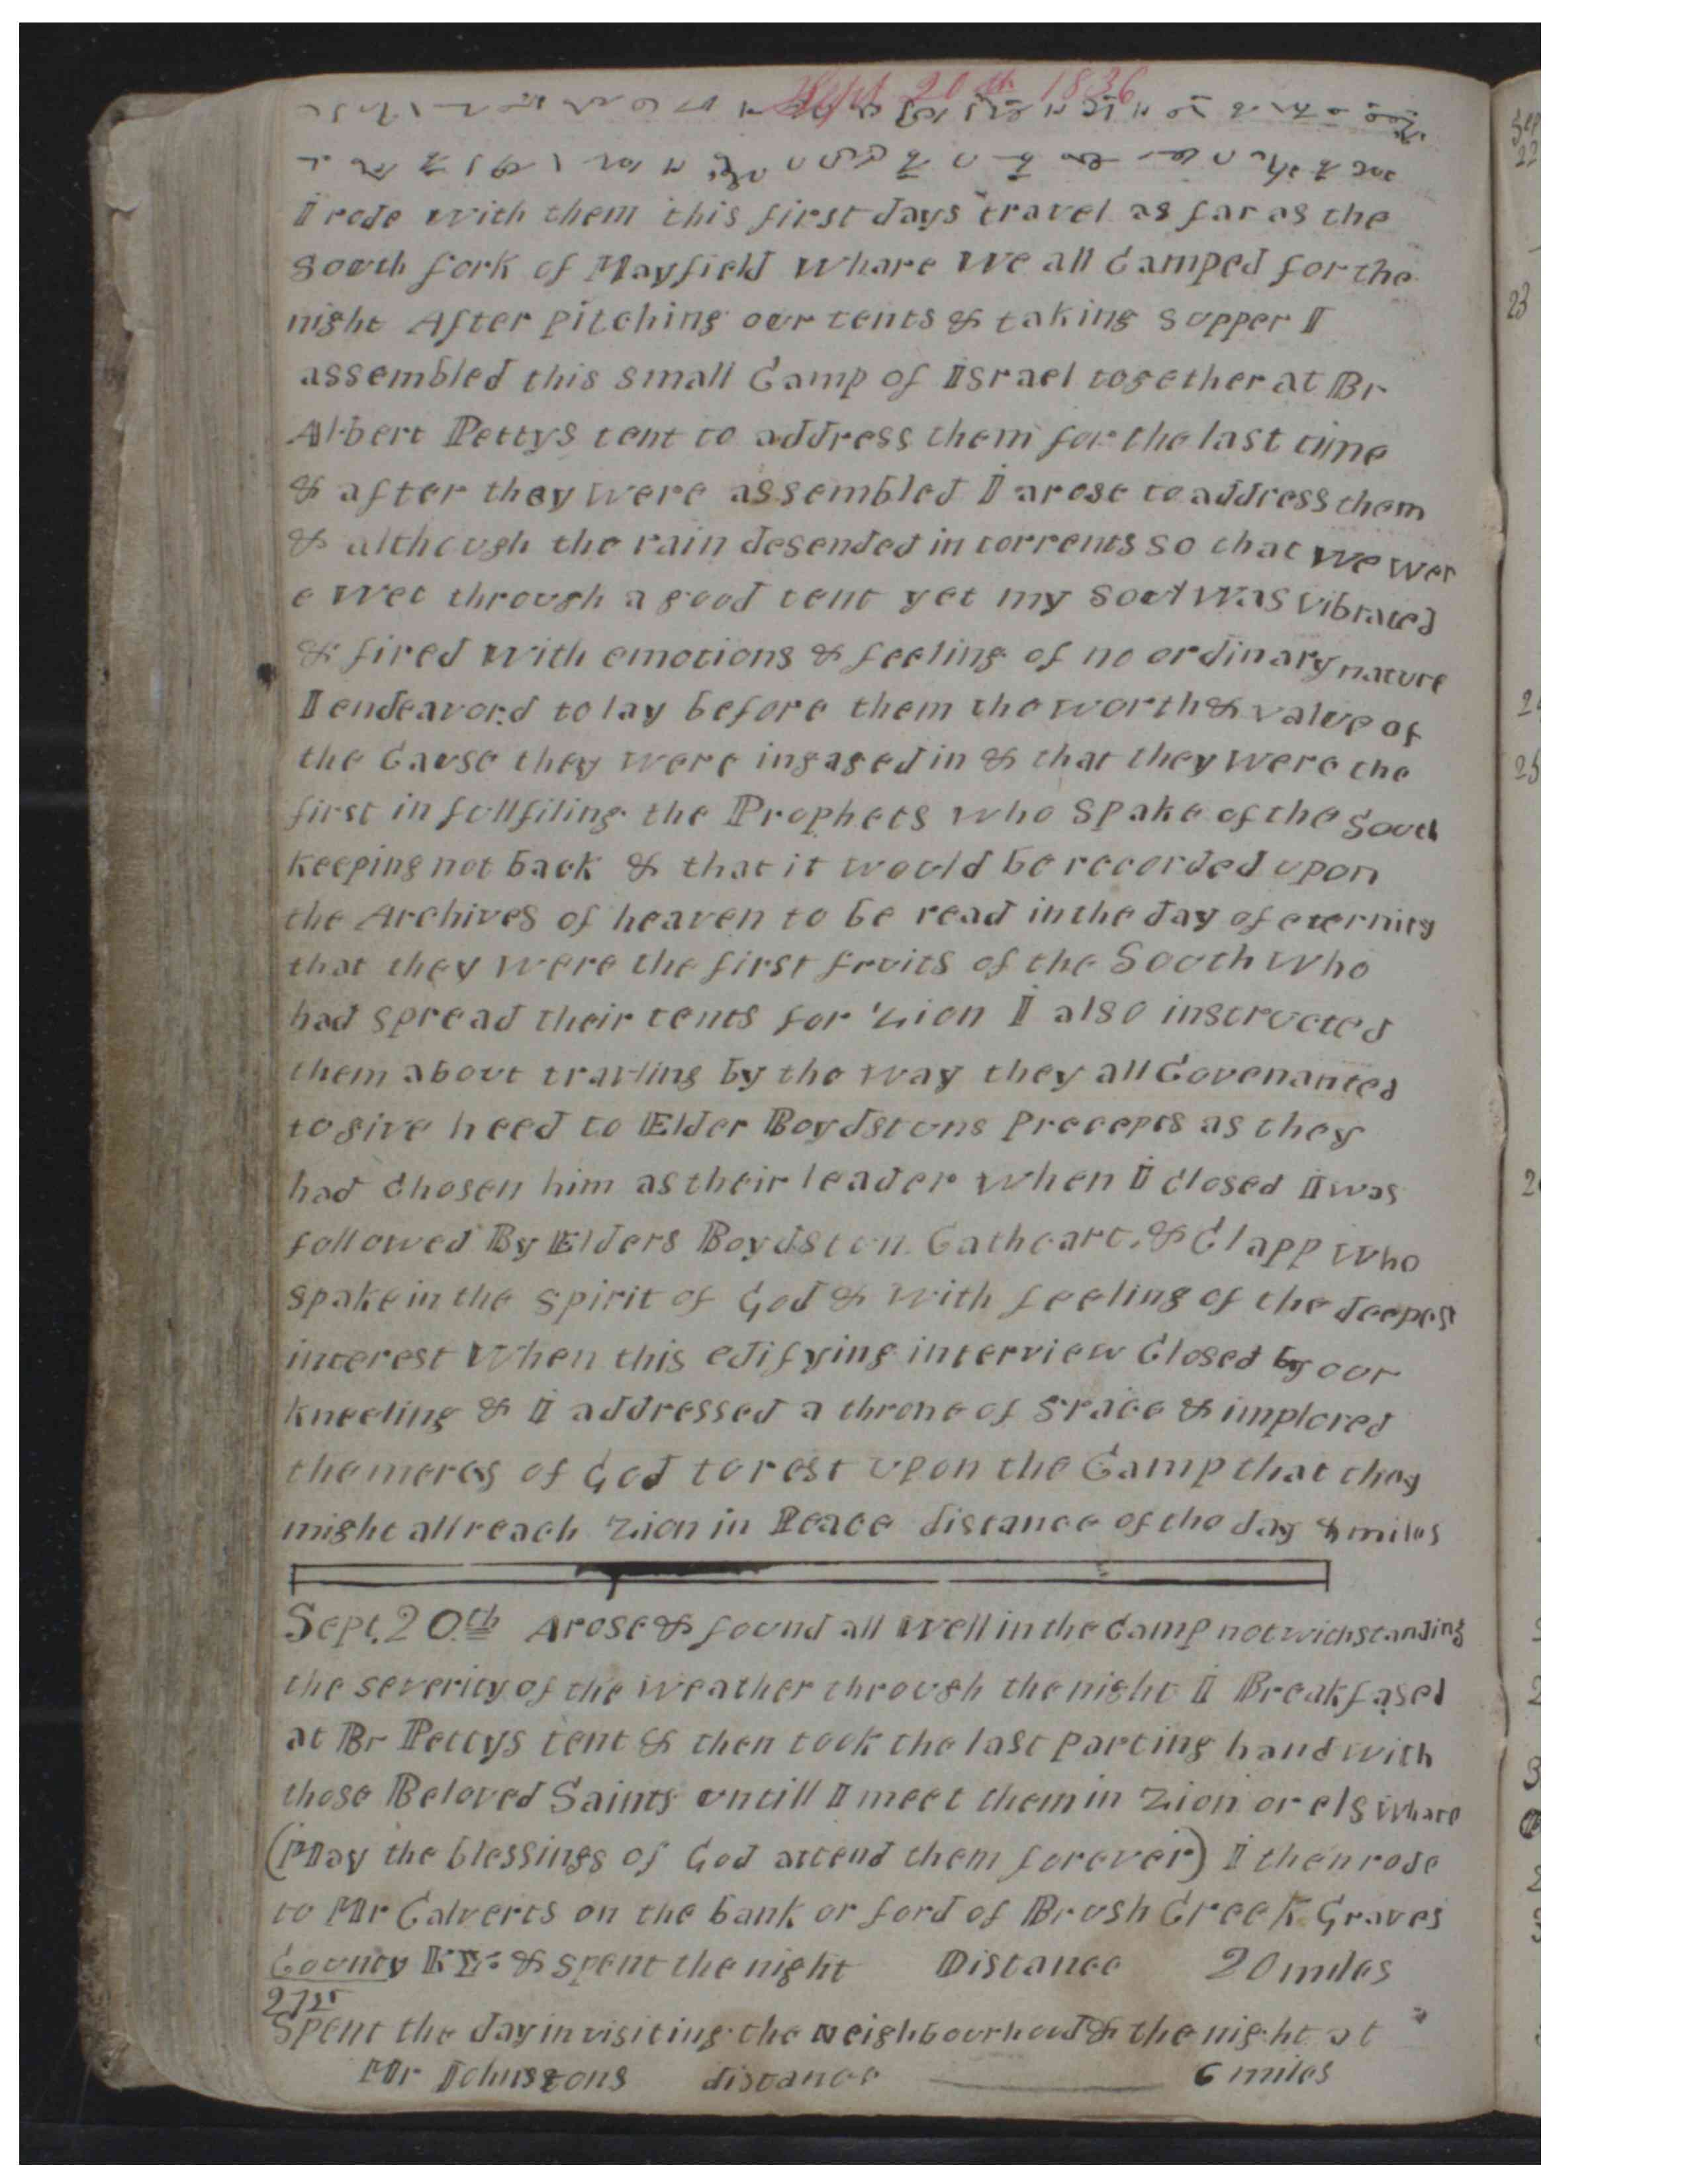 Sept 20th 1836
I rode with them this first days travel as far as the
South fork of Mayfield whare we all Camped for the
night After pitching our tents & taking supper I
assembled this small Camp of Israel together at Br
Albert Pettys tent to address them for the last time
& after they were assembled I arose to address them
& although the rain desended in torrents so that we wer
e wet through a good tent yet my soul was vibrated
& fired with emotions & feeling of no ordinary nature
I endeavord to lay before them the worth & value of
the Cause they were ingaged in & that they were the
first in fullfiling the Prophets who spake of the South
keeping not back & that it would be recorded upon
the Archives of heaven to be read in the day of eternity
that they were the first fruits of the South who
had spread their tents for Zion I also instructed
them about travling by the way they all Covenanted
to give heed to Elder Boydstuns Precepts as they
had Chosen him as their leader when I Closed I was
followed By Elders Boydstun Cathcart, & Clapp who
spake in the spirit of God & with feeling of the deepest
interest When this edifying interview Closed by our
kneeling & I addressed a throne of grace & implored
the mercy of God to rest upon the Camp that they
might all reach Zion in Peace distance of the day 8 miles
Sept. 20th Arose & found all well in the Camp notwithstanding
the severity of the weather through the night I Breakfased
at Br Pettys tent & then took the last parting hand with
those Beloved Saints untill I meet them in Zion or els whare
(May the blessings of God attend them forever) I then rode
to Mr Calverts on the bank or ford of Brush Creek Graves
County KY: & spent the night Distance 20 miles
21st
Spent the day in visiting the neighbourhood & the night at
Mr Johnstons distance 6 miles